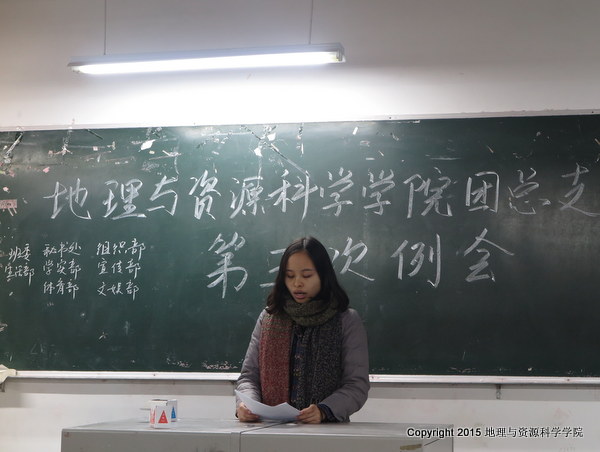 地理与资源科学学院团总支
第三次例会
班委 秘书处 组织部
实践部 学实部 宣传部
体育部 文娱部
Copyright 2015 地理与资源科学学院